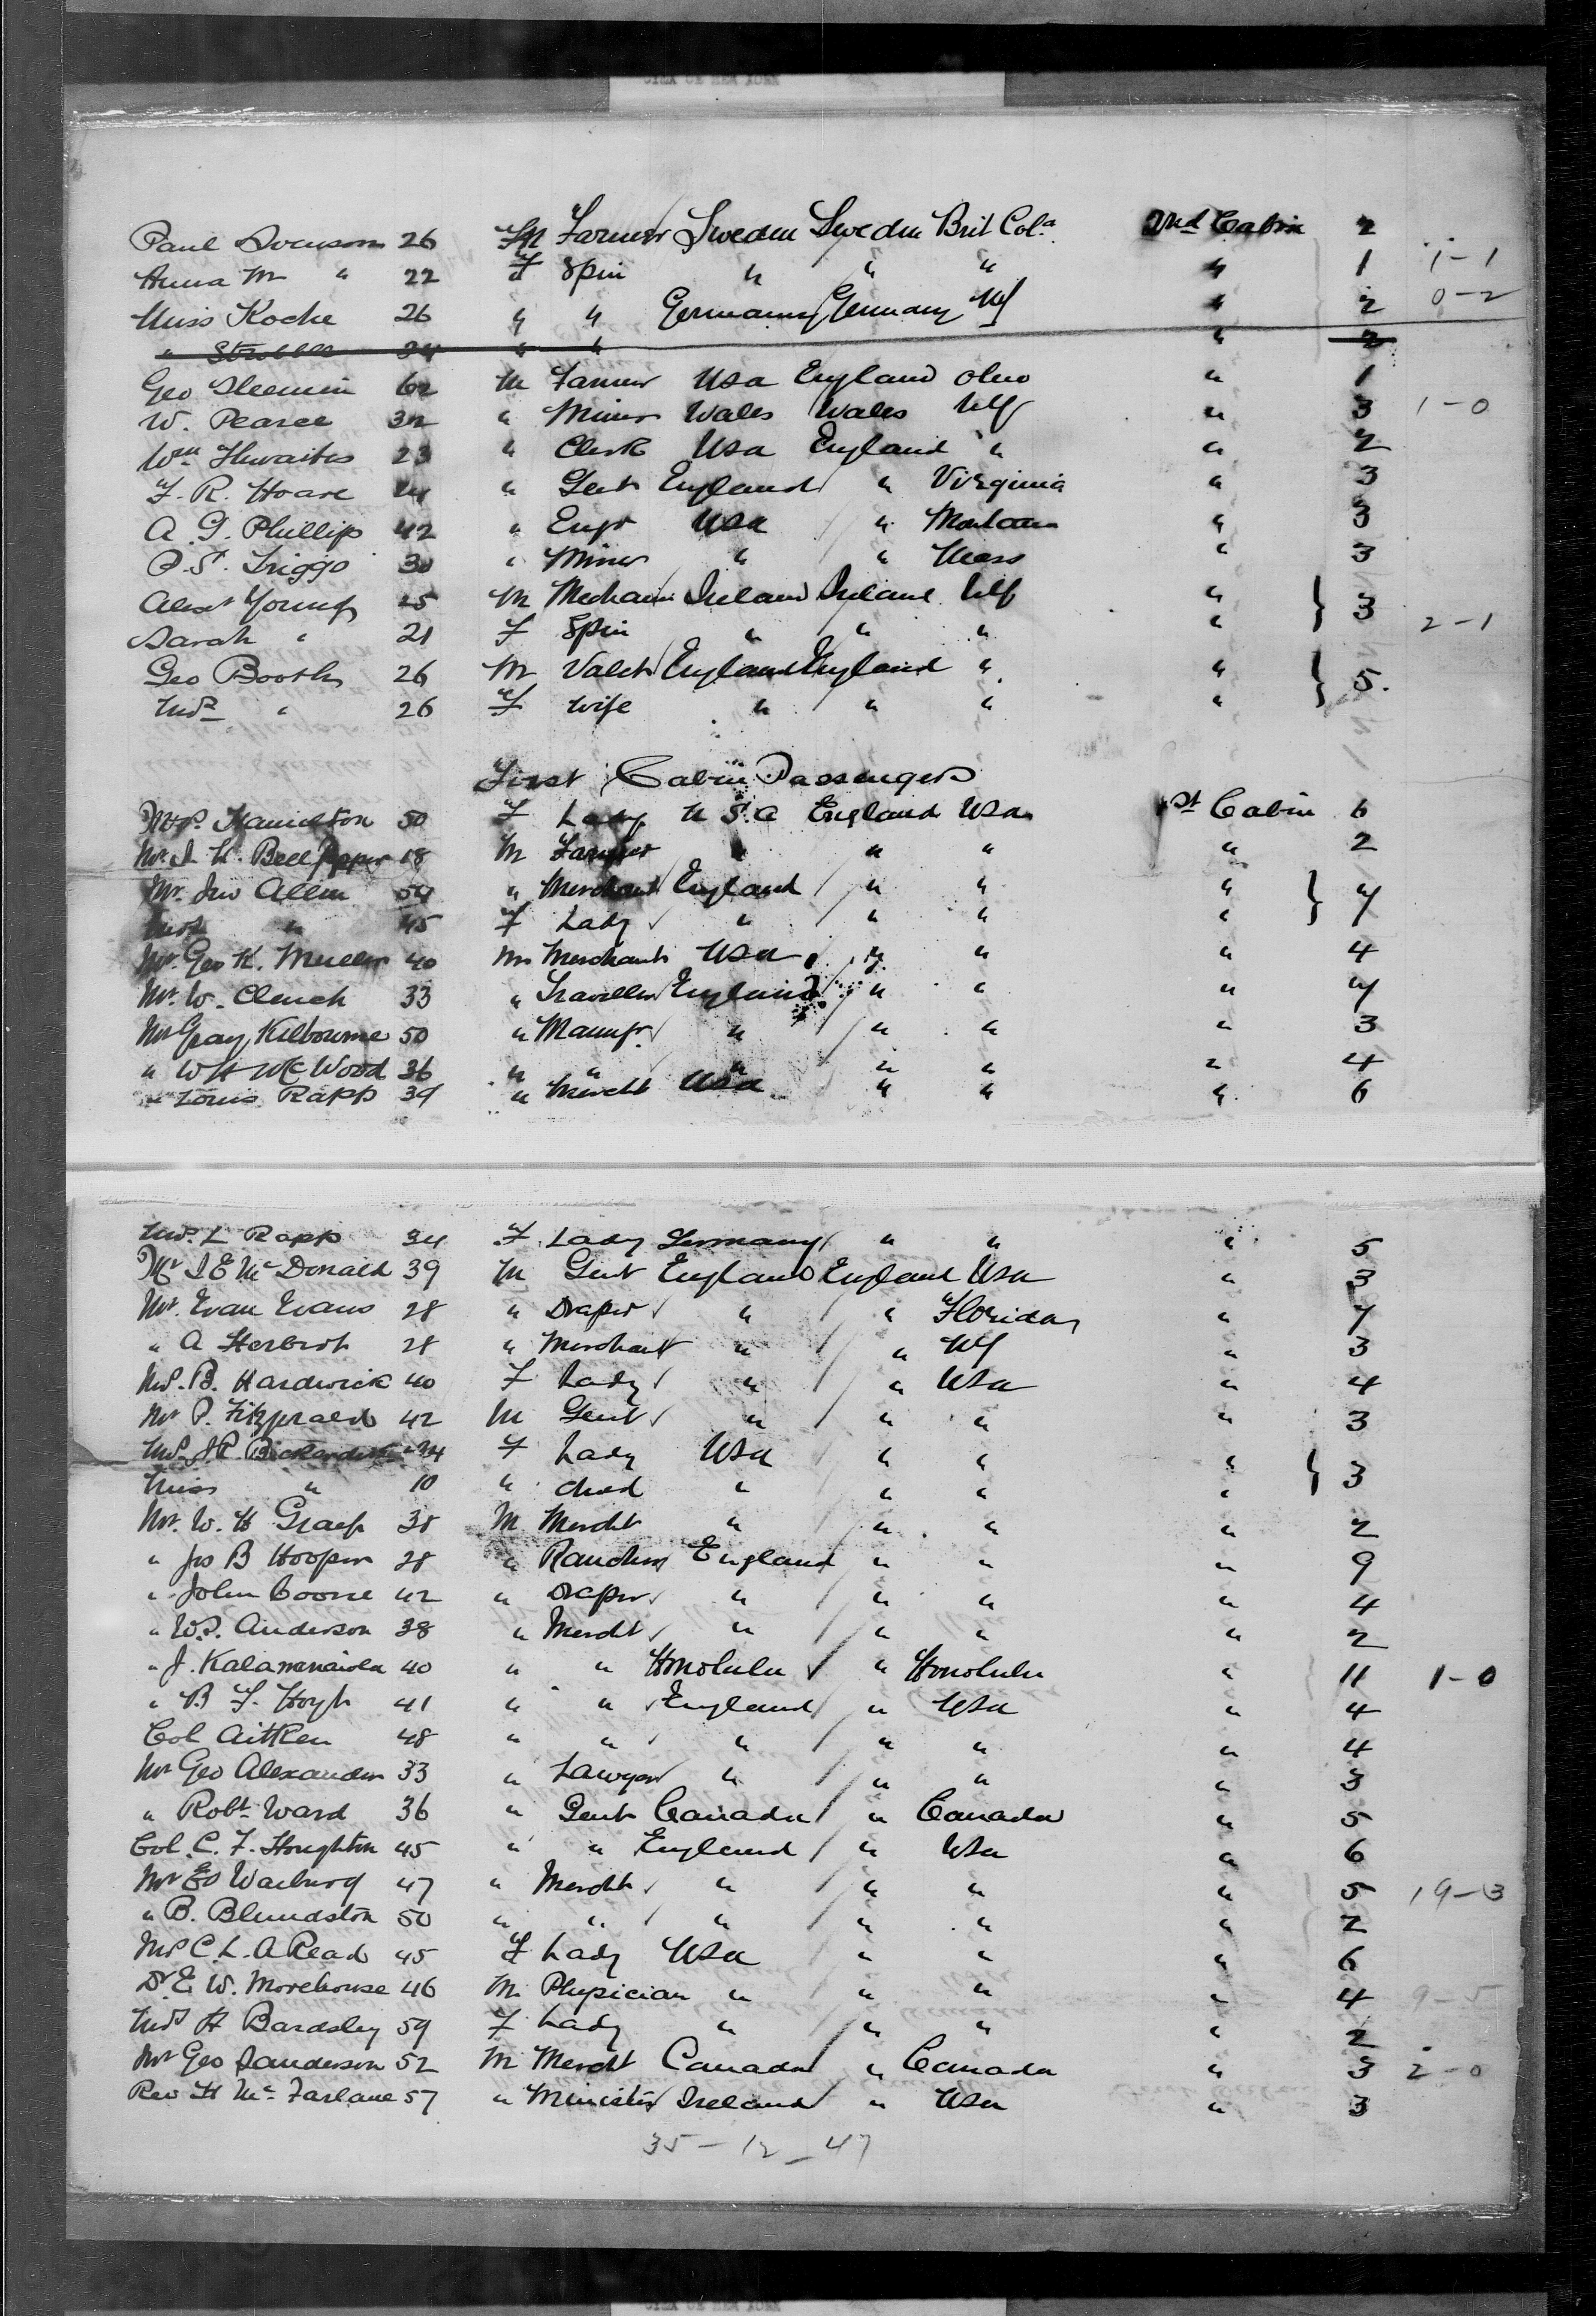 Paul Svenson 26 M Farmer Sweden Sweden Brit Col.a 2nd Cabin 2
Anna M " 22 F Spin " " " " 1 1-1
Miss Koche 26 " " Germany Germany NY " 2 0-2
" 24 " " " 2
Geo Sleemin 62 M Farmer USA England Ohio " 1
W. Pearce 32 " Miner Wales Wales NY " 3 1-0
Wm Thwaites 23 " Clerk USA England " " 2
F. R. Hoare " Gent England " Virginia " 3
A. G. Phillips 42 " Engr USA " Montana " 3
P.S. Triggs 30 " Miner " " Mass " 3
Alext Young 25 M Mechanic Ireland Ireland NY " } 3
Sarah " 21 F Spin " " " " 2-1
Geo Booth 26 M Valet England England " " } 5.
Mrs " 26 F wife " " " "
First Cabin Passengers
Mrs. Hamilton 50 F Lady U S A England USA 1st Cabin 6
Mr. J. H. Bell 18 M Farmer " " " " 2
Mr. Jno Allen 54 " Merchant England " " " } 7
Mrs " 45 F Lady " " " "
Mr. Geo K. Mueller 40 M Merchant USA " " " 4
Mr. W. Clench 33 " Traveller England " " " 7
Mr Gray Kilbourne 50 " Manufr. " " " " 3
" W H McWood 36 " " " " " " 4
" Louis Rapp 39 " Mercht USA " " " 6
Mrs. L Rapp 34 F Lady Germany " " " 5
Mr J E McDonald 39 M Gent England England USA " 3
Mr. Evan Evans 28 " Draper " " Florida " 7
" A Herbert 28 " Merchant " " NY " 3
Mrs. B. Hardwick 40 F Lady " " USA " 4
Mr P. Fitzgerald 42 M Gent " " " " 3
Mrs. J.R. 34 F Lady USA " " " } 3
Miss " 10 " child " " " "
Mr. W. H Graef 38 M Mercht " " " " 2
" Jas B Hooper 28 " Rancher England " " " 9
" John Coone 42 " Draper " " " " 4
" W.P. Anderson 38 " Mercht " " " " 2
" J. Kalamenaiola 40 " " Honolulu " Honolulu " 11 1-0
" B F. Hoyt 41 " " England " USA " 4
Col Aitken 48 " " " " " " 4
Mr Geo Alexander 33 " Lawyer " " " " 3
" Robt Ward 36 " Gent Canada " Canada " 5
Col. C. F. Houghton 45 " " England " USA " 6
Mr Ed Warburg 47 " Mercht " " " " 5 19-3
" B. Blundston 50 " " " " " " 2
Mrs C. L. A Read 45 F Lady USA " " " 6
Dr E. W. Morehouse 46 M Physician " " " " 4 9-5
Mrs H Bardsley 59 F Lady " " " " 2
Mr Geo Sanderson 52 M Mercht Canada " Canada " 3 2-0
Rev H McFarlane 57 " Minister Ireland " USA " 3
35-12-47